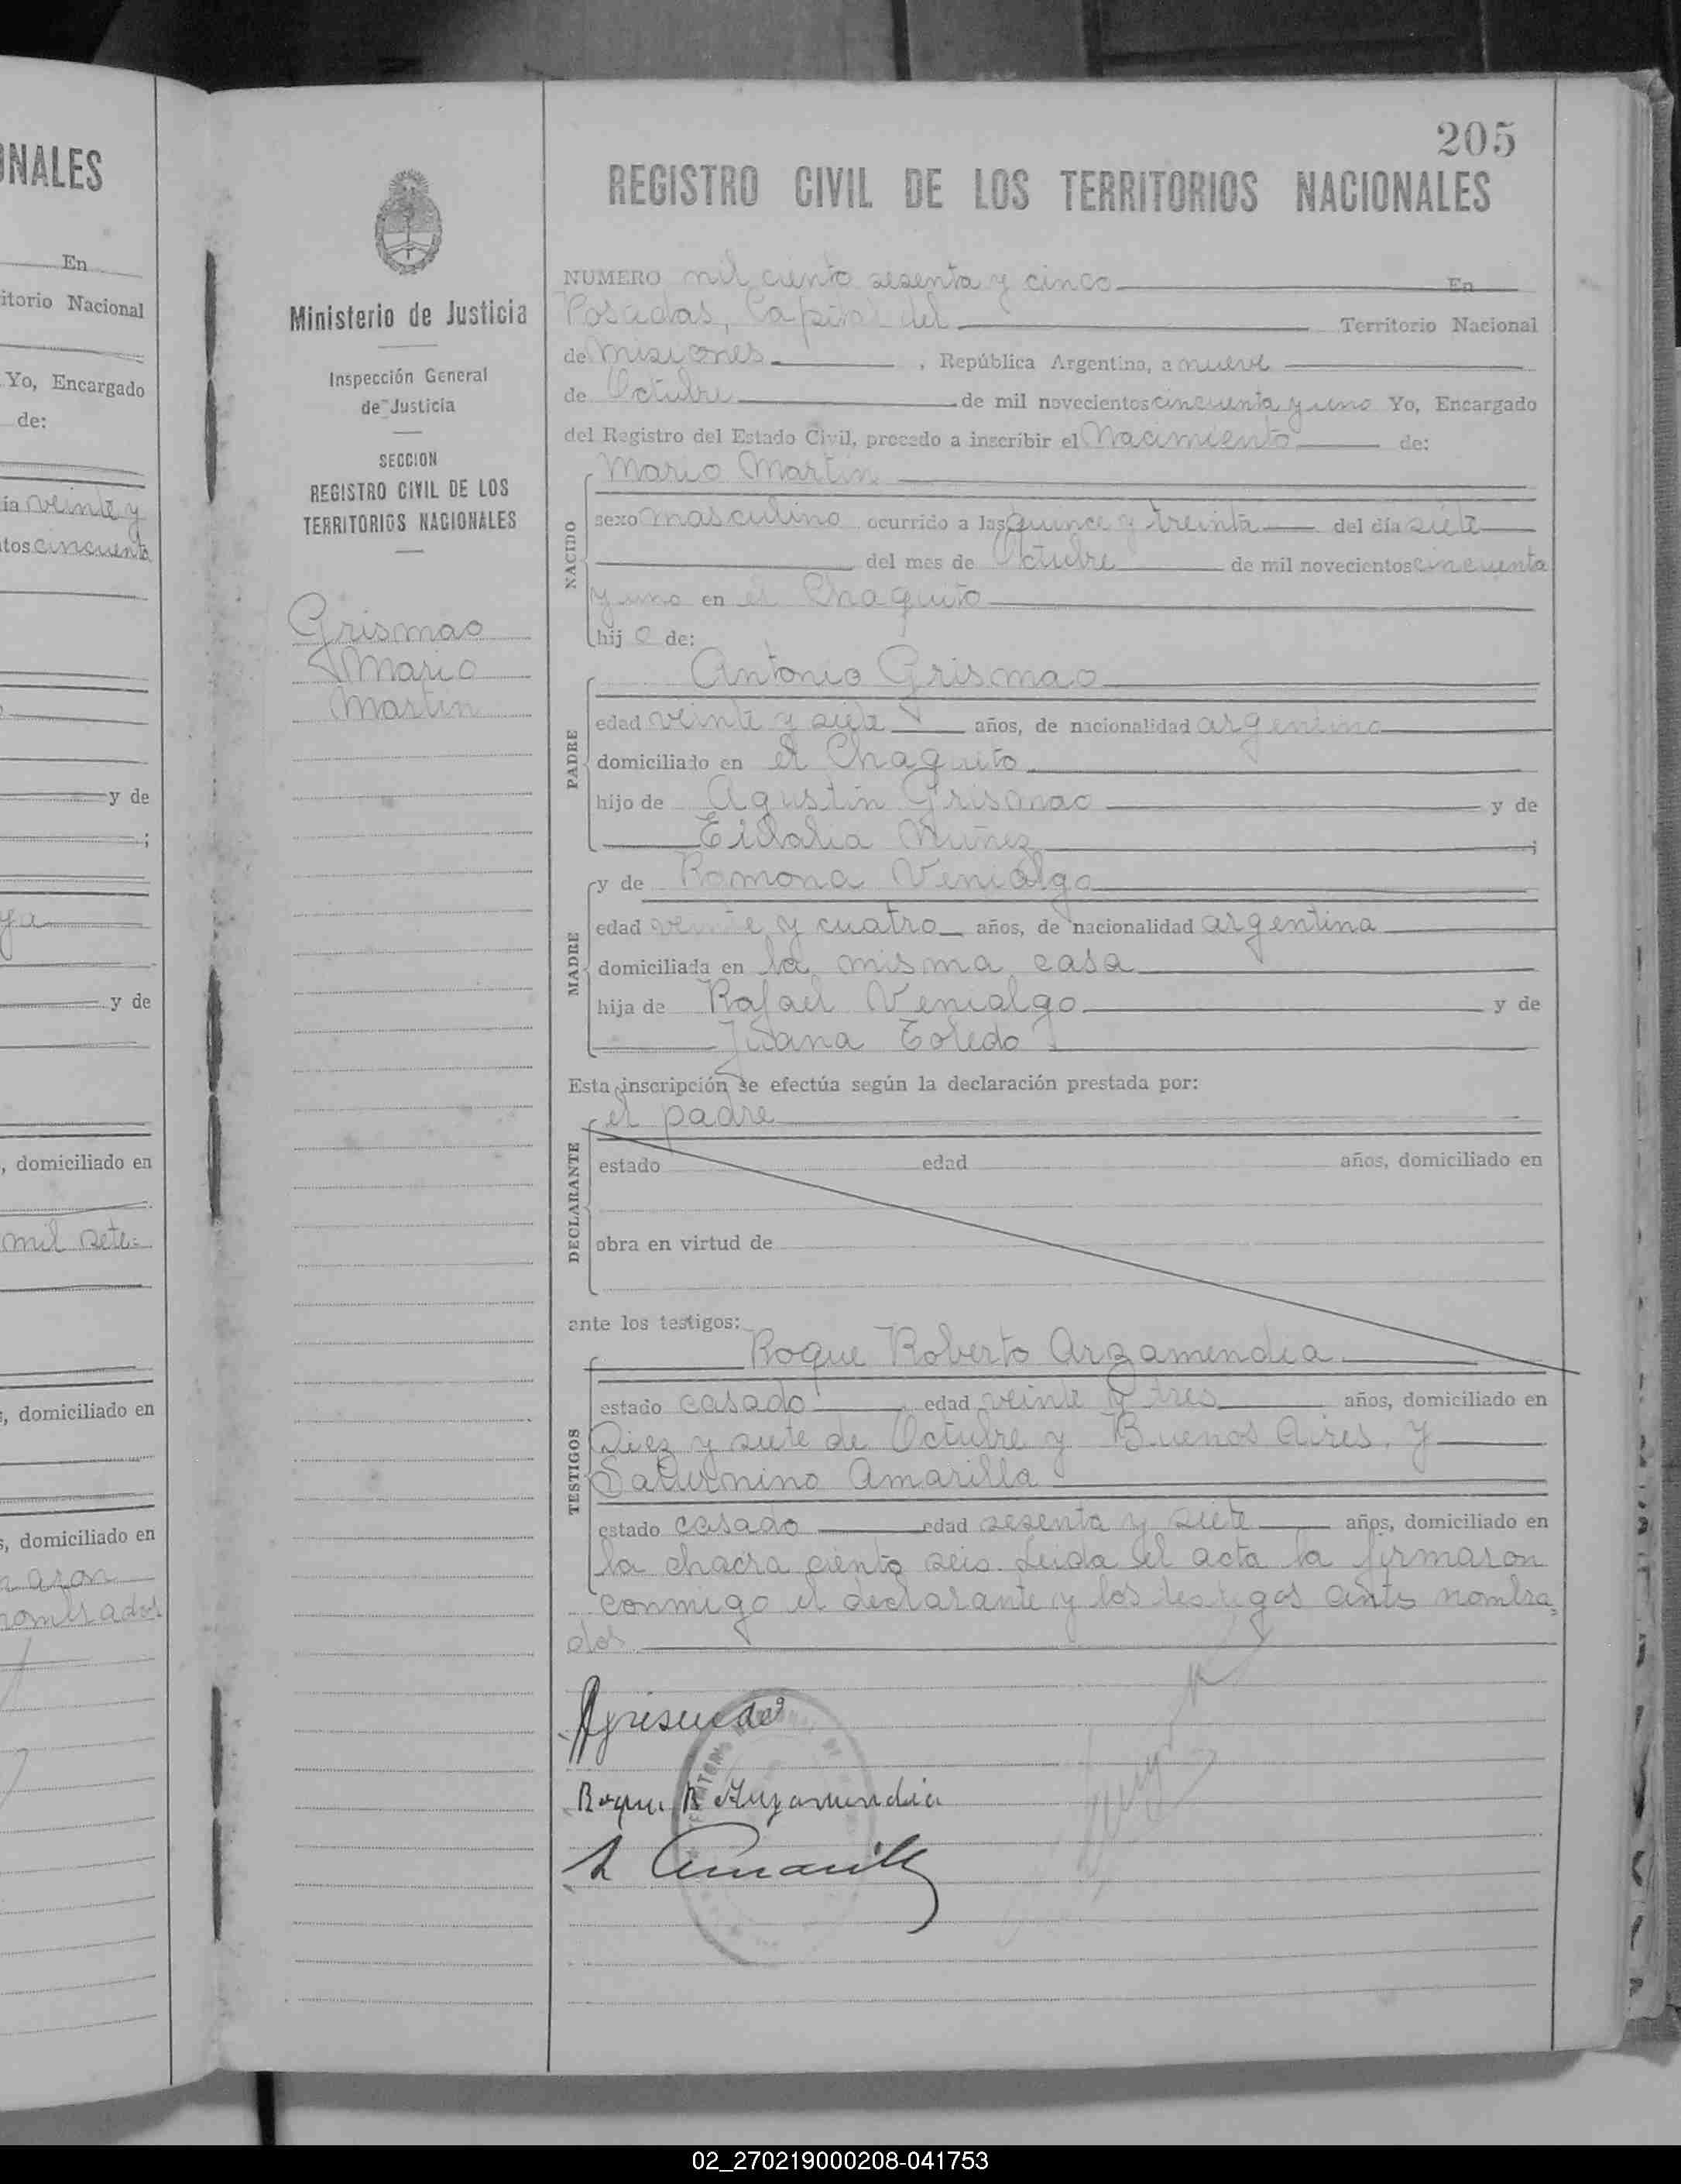 ONALES
En
itorio Nacional
Yo, Encargado
de:
ía veinte y
tos cincuenta
y de
;
ya
y de
, domiciliado en
mil sete-
, domiciliado en
, domiciliado en
nombrados
Ministerio de Justicia
Inspección General
de Justicia
SECCION
REGISTRO CIVIL DE LOS
TERRITORIOS NACIONALES
Grismao
Mario
Martin
205
REGISTRO CIVIL DE LOS TERRITORIOS NACIONALES
NUMERO mil ciento sesenta y cinco En
Posadas, Capital del Territorio Nacional
de Misiones, República Argentina, a nueve
de Octubre de mil novecientos cincuenta y uno Yo, Encargado
del Registro del Estado Civil, procedo a inscribir el Nacimiento de:
Mario Martin
NACIDO
sexo masculino ocurrido a las quince y treinta del día siete
del mes de Octubre de mil novecientos cincuenta
y uno en el Chaquito
hijo de:
Antonio Grismao
PADRE
edad veinte y siete años, de nacionalidad argentino
domiciliado en el Chaquito
hijo de Agustin Grismao y de
Eidalia Nuñez ;
y de Ramona Venialgo
MADRE
edad veinte y cuatro años, de nacionalidad argentina
domiciliada en la misma casa
hija de Rafael Venialgo y de
Juana Toledo
Esta inscripción se efectúa según la declaración prestada por:
el padre
DECLARANTE
estado edad años, domiciliado en
obra en virtud de
ante los testigos:
Roque Roberto Arzamendia
TESTIGOS
estado casado edad veinte y tres años, domiciliado en
Diez y siete de Octubre y Buenos Aires. y
Saturnino Amarilla
estado casado edad sesenta y siete años, domiciliado en
la chacra ciento seis. Leida el acta la firmaron
conmigo el declarante y los testigos ante nombra-
dos
Roque R Arzamendia
02_270219000208-041753